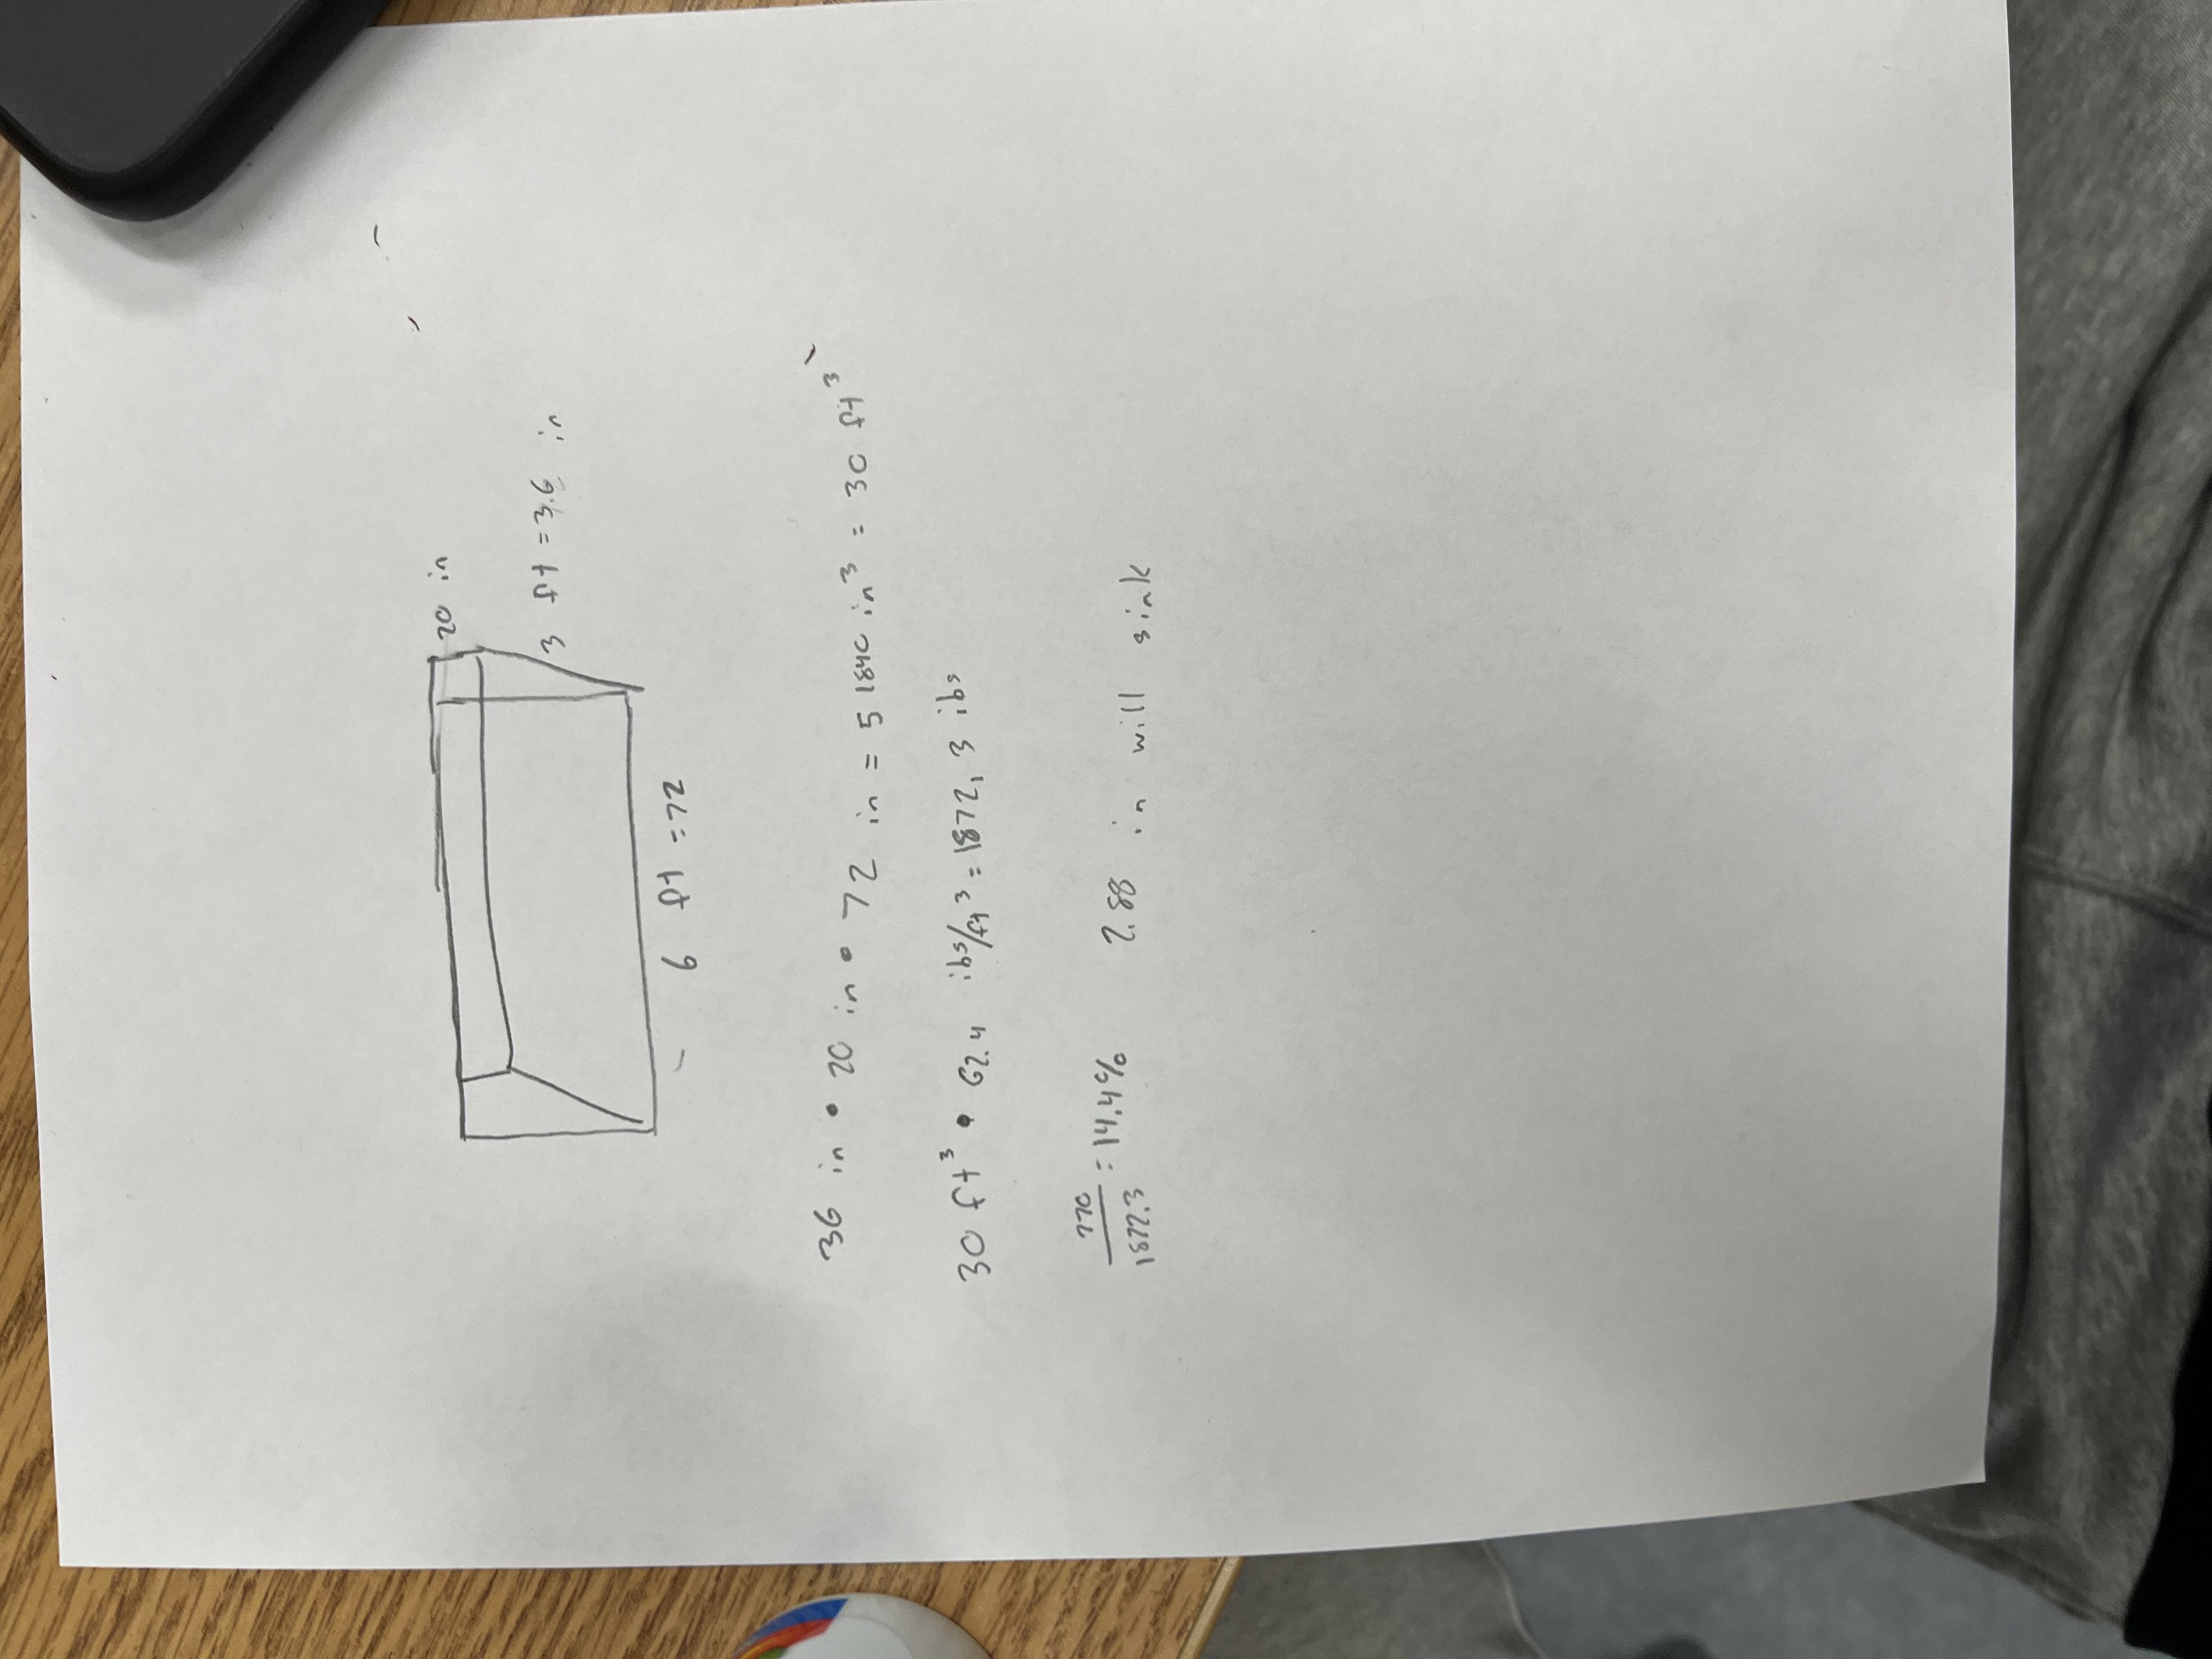 20 in
3 ft = 3.6 in
6 ft = 72
36 in • 20 in • 72 in = 51840 in³ = 30 ft³
30 ft³ • 62.4 ibs/ft³ = 1872.3 ibs
270
1872.3
= 14.4%
2.88 in will sink